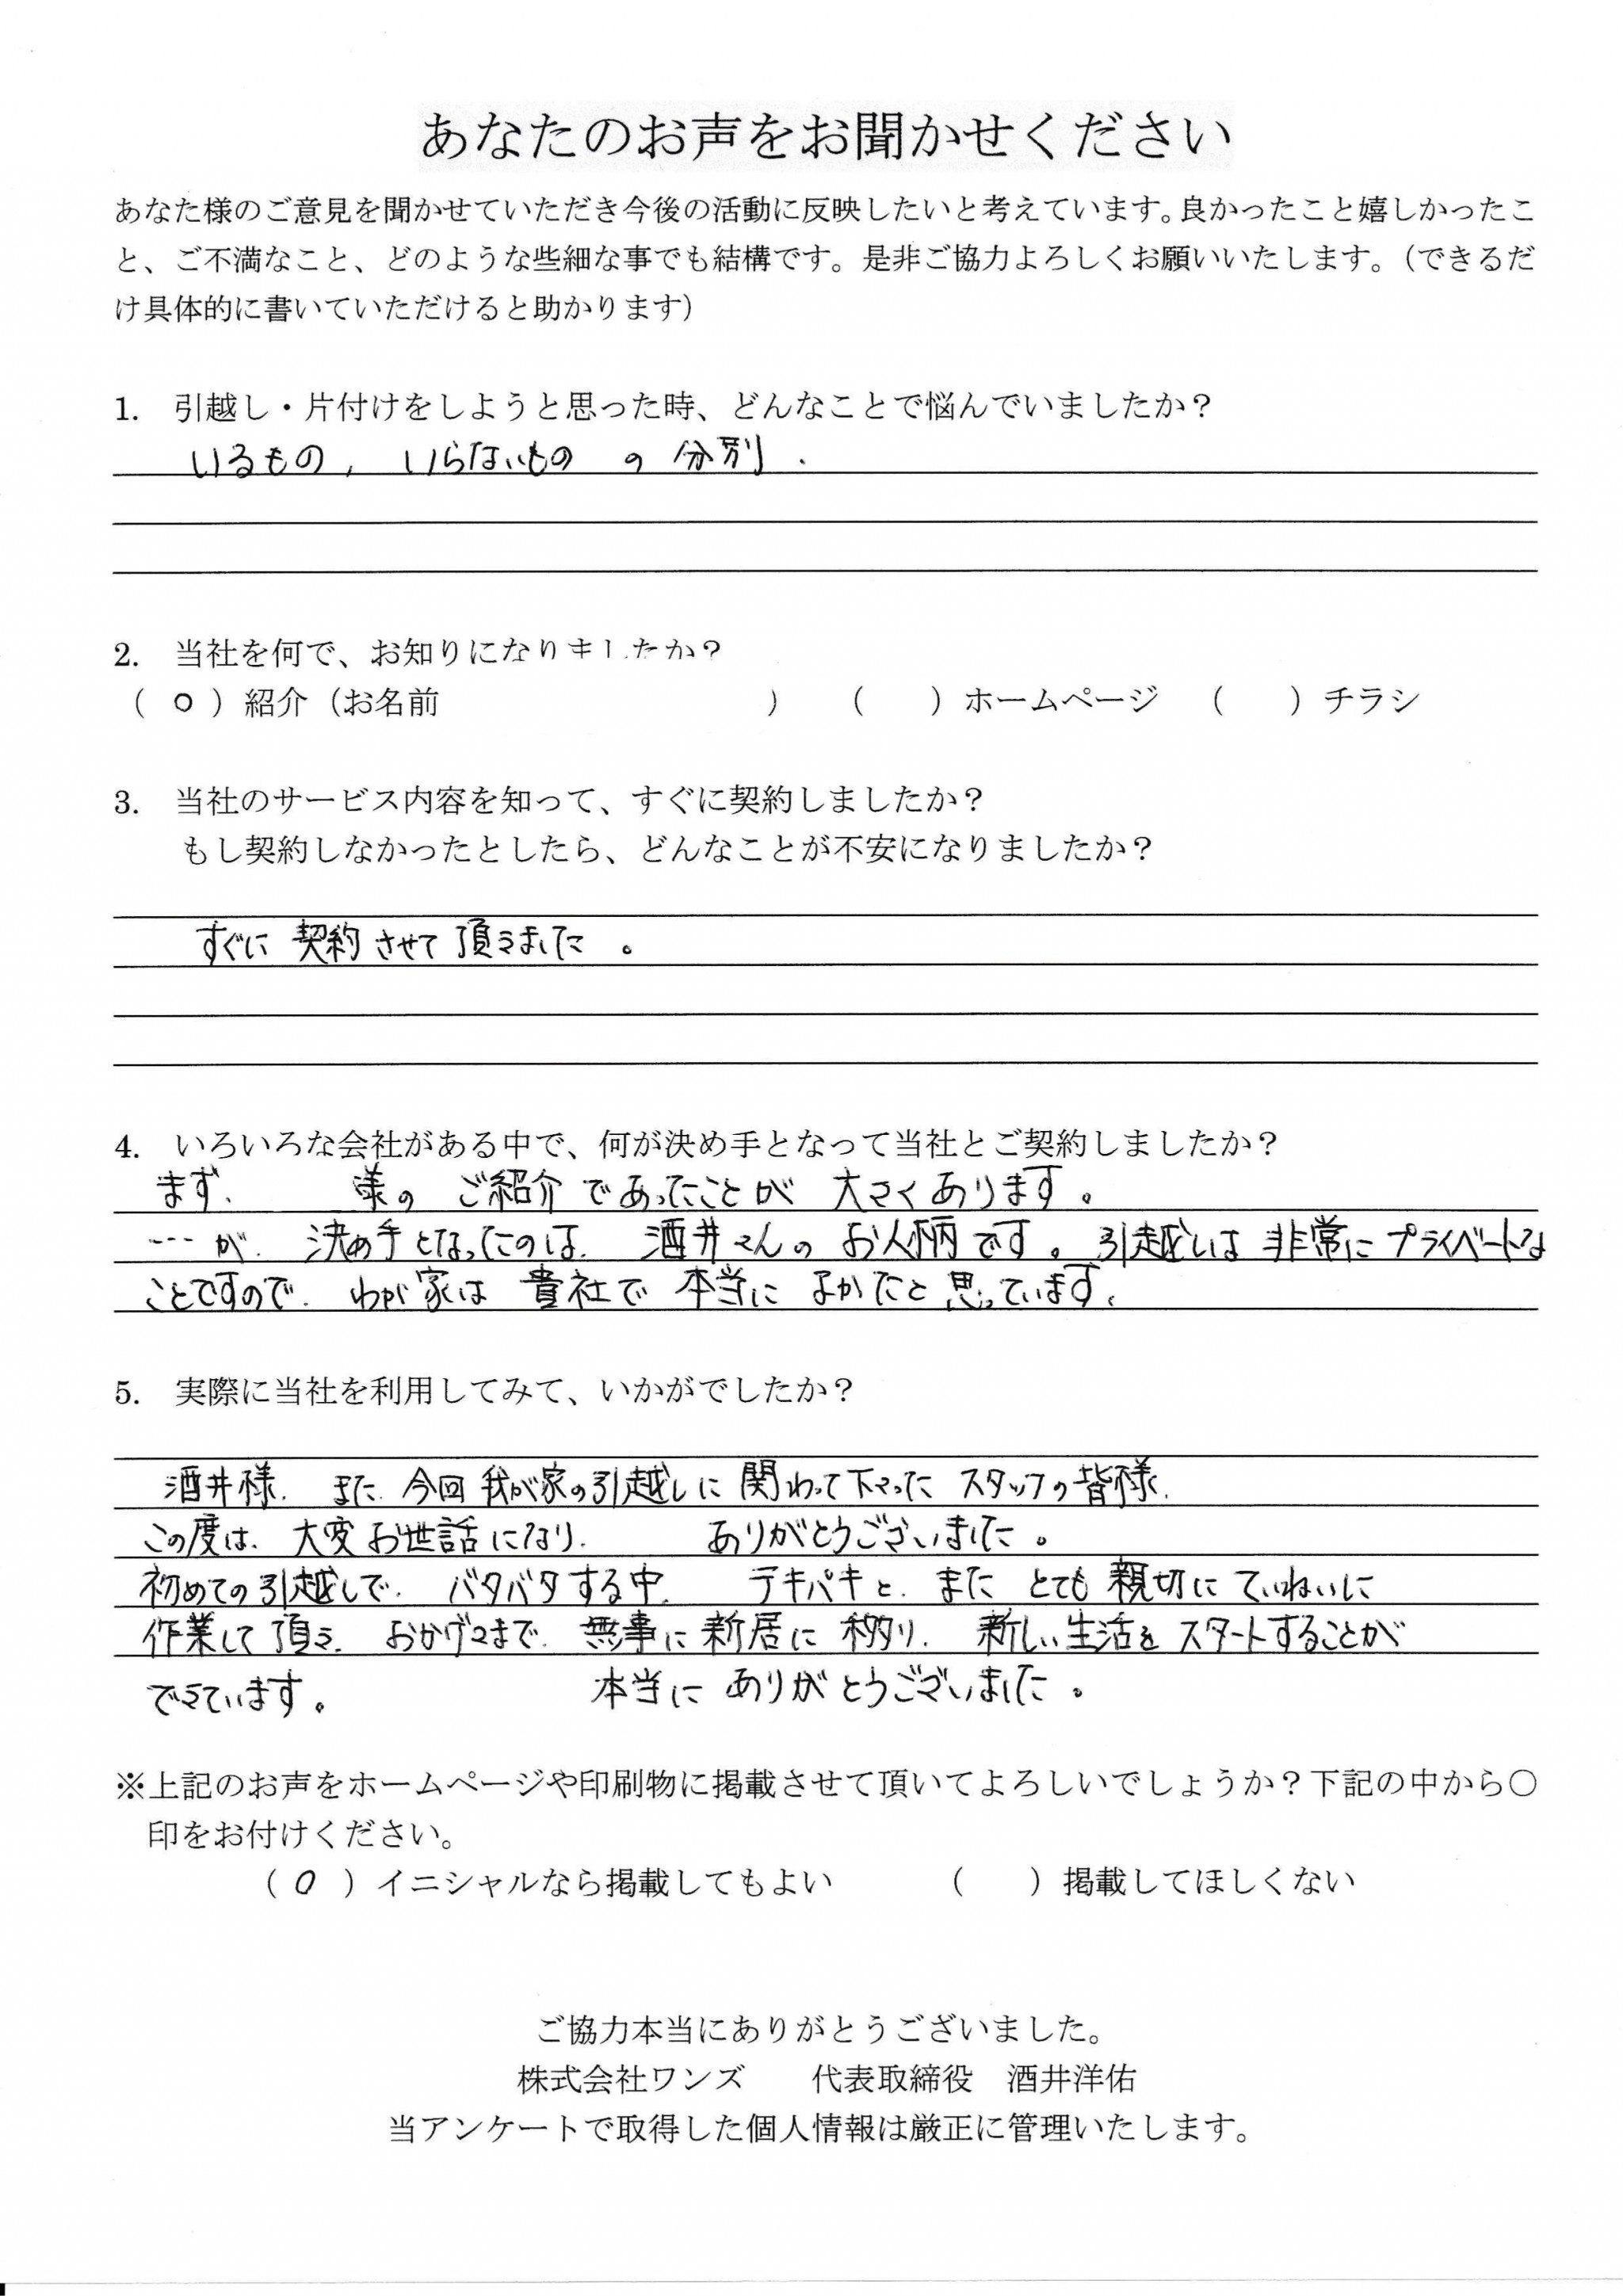 あなたのお声をお聞かせください
あなた様のご意見を聞かせていただき今後の活動に反映したいと考えています。良かったこと嬉しかったこ
と、ご不満なこと、どのような些細な事でも結構です。是非ご協力よろしくお願いいたします。（できるだ
け具体的に書いていただけると助かります）
1. 引越し・片付けをしようと思った時、どんなことで悩んでいましたか？
いるもの, いらないもの の 分別.
2. 当社を何で、お知りになりましたか？
（ ○ ）紹介（お名前 ） （ ）ホームページ （ ）チラシ
3. 当社のサービス内容を知って、すぐに契約しましたか？
もし契約しなかったとしたら、どんなことが不安になりましたか？
すぐに 契約 させて 頂きました 。
4. いろいろな会社がある中で、何が決め手となって当社とご契約しましたか？
まず、 様の ご紹介 であったことが 大きくあります。
…が、決め手となったのは、酒井さんの お人柄です。引越しは 非常に プライベートな
ことですので、わが家は 貴社で 本当に よかったと 思っています。
5. 実際に当社を利用してみて、いかがでしたか？
酒井様、また、今回 我が家の引越しに 関わって下さった スタッフの皆様、
この度は、大変お世話になり、 ありがとうございました。
初めての引越しで、バタバタする中、テキパキと、また とても 親切に ていねいに
作業して頂き、おかげさまで、無事に新居に 移り、新しい生活を スタートすることが
できています。 本当に ありがとうございました。
※上記のお声をホームページや印刷物に掲載させて頂いてよろしいでしょうか？下記の中から〇
印をお付けください。
（ 〇 ）イニシャルなら掲載してもよい （ ）掲載してほしくない
ご協力本当にありがとうございました。
株式会社ワンズ 代表取締役 酒井洋佑
当アンケートで取得した個人情報は厳正に管理いたします。